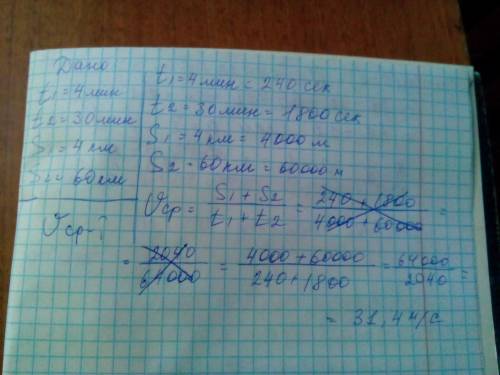 Дано
t₁=4мин
t₂=30мин
S₁=4км
S₂=60км
Vср-?
t₁=4мин=240сек
t₂=30мин=1800сек
S₁=4км=4000м
S₂-60км=60000м
Vср=(S₁+S₂)/(t₁+t₂)=(240+1800)/(4000+60000)=
=2040/64000=(4000+60000)/(240+1800)=64000/2040=
=31,4м/с